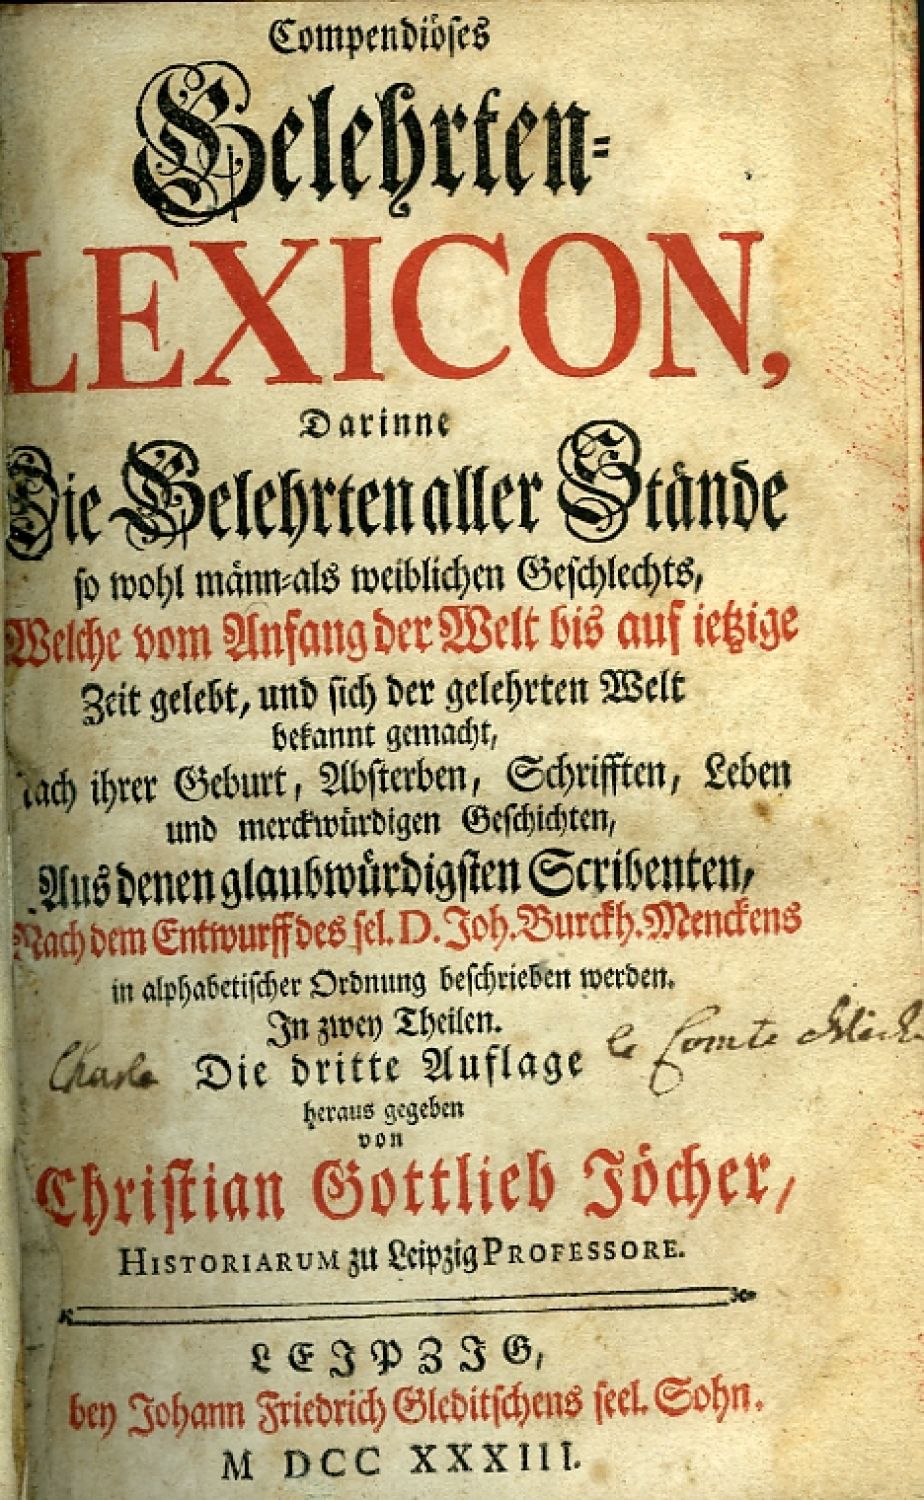 Compendiöses
Gelehrten-
LEXICON,
Darinne
Die Gelehrten aller Stände
so wohl männ-als weiblichen Geschlechts,
Welche vom Anfang der Welt bis auf ietzige
Zeit gelebt, und sich der gelehrten Welt
bekannt gemacht,
Nach ihrer Geburt, Absterben, Schrifften, Leben
und merckwürdigen Geschichten,
Aus denen glaubwürdigsten Scribenten,
Nach dem Entwurff des sel. D. Joh. Burckh. Menckens
in alphabetischer Ordnung beschrieben werden.
In zwey Theilen.
Charle le Comte
Die dritte Auflage
heraus gegeben
von
Christian Gottlieb Jöcher,
HISTORIARUM zu Leipzig PROFESSORE.
LEJPZJG,
bey Johann Friedrich Gleditschens seel. Sohn.
M DCC XXXIII.